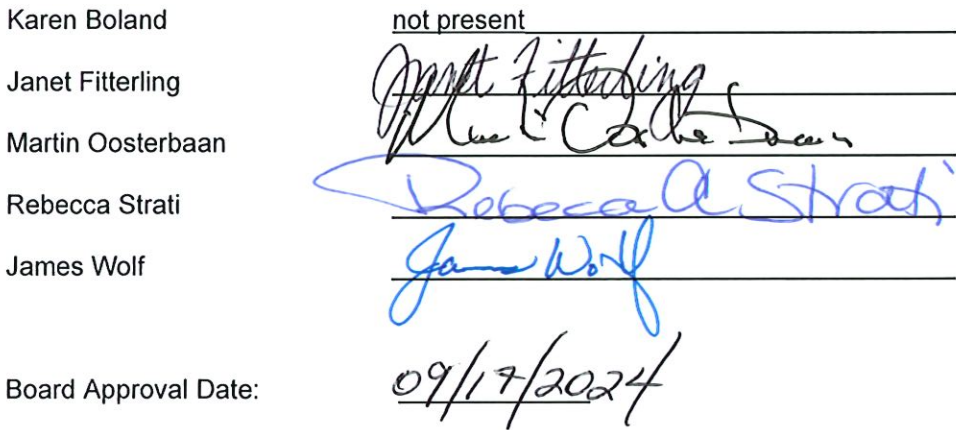 Karen Boland not present
Janet Fitterling Janet Fitterling
Martin Oosterbaan
Rebecca Strati Rebecca A Strati
James Wolf James Wolf
Board Approval Date: 09/17/2024